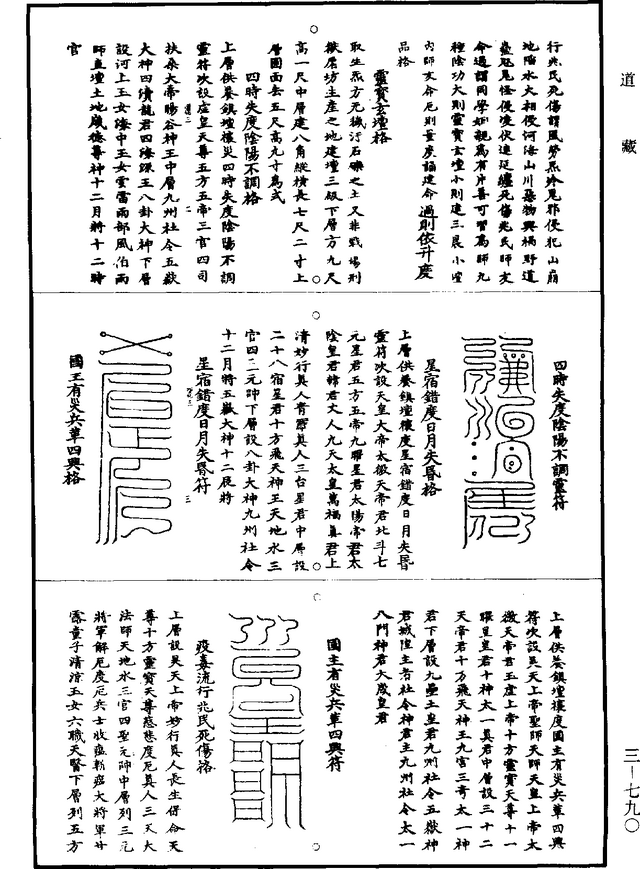 道藏
行兆民死傷謂風勞炁疰尾邪侵犯山崩
地陷水火相侵河海山川惡物興禍野道
蠱尫見怪侵凌伏連延纏死傷兆民師友
命過謂同學如親爲有片善可譽爲師九
種陰功大則靈寶玄壇小則建三晨小壇
內師友命厄則童虔誦建命過則依升度
品格
靈寶玄壇格
取生炁方元無穢汙石礫之土又非戰場刑
獄屠坊土產之地建壇三級下層方九尺
高一尺中層建八角縱橫長七尺二寸上
層圓面去五尺高九寸爲式
四時失度陰陽不調格
上層供養鎮壇禳災四時失度陰陽不調
靈符次設虛皇天尊五方五帝三官四司
扶桑大帝暘谷神王中層九州社令五嶽
大神四瀆龍君四海源王八卦大神下層
設河上玉女海中王女雲雷雨部風伯雨
師直壇土地威德尊神十二月將十二時
官
四時失度陰陽不調靈符
星宿錯度日月失昏格
上層供養鎮壇禳度星宿錯度日月失昏
靈符次設天皇大帝太微天帝君北斗七
元星君五方五帝九曜星君太陽帝君太
陰皇君韓君丈人九天太皇萬福真君上
清妙行真人青際真人三台星君中層設
二十八宿星君十方飛天神王天地水三
官四二元帥下層設八卦大神九州社令
十二月將五嶽大神十二辰將
星宿錯度日月失昏符
國王有災兵革四興格
上層供養鎮壇禳度國主有災兵革四興
符次設昊天上帝聖師天師天皇上帝太
微天帝君五虛上帝十方靈寶天尊十一
曜星皇君十神太一真君中層設三十二
天帝君十方飛天神王九宮三奇太一神
君下層設九壘土皇君九州社令五嶽神
君城隍主者社令神君主九州社令太一
八門神君大歲皇君
國主有災兵革四興符
疫毒流行兆民死傷格
上層設昊天上帝妙行真人長生保命天
尊十方靈寶天尊慈悲度厄真人三天大
法師天地水三官四聖元帥中層列三元
將軍解厄度厄兵士收瘟斬瘟大將軍甘
露童子清涼玉女六職天醫下層列五方
三—七九〇